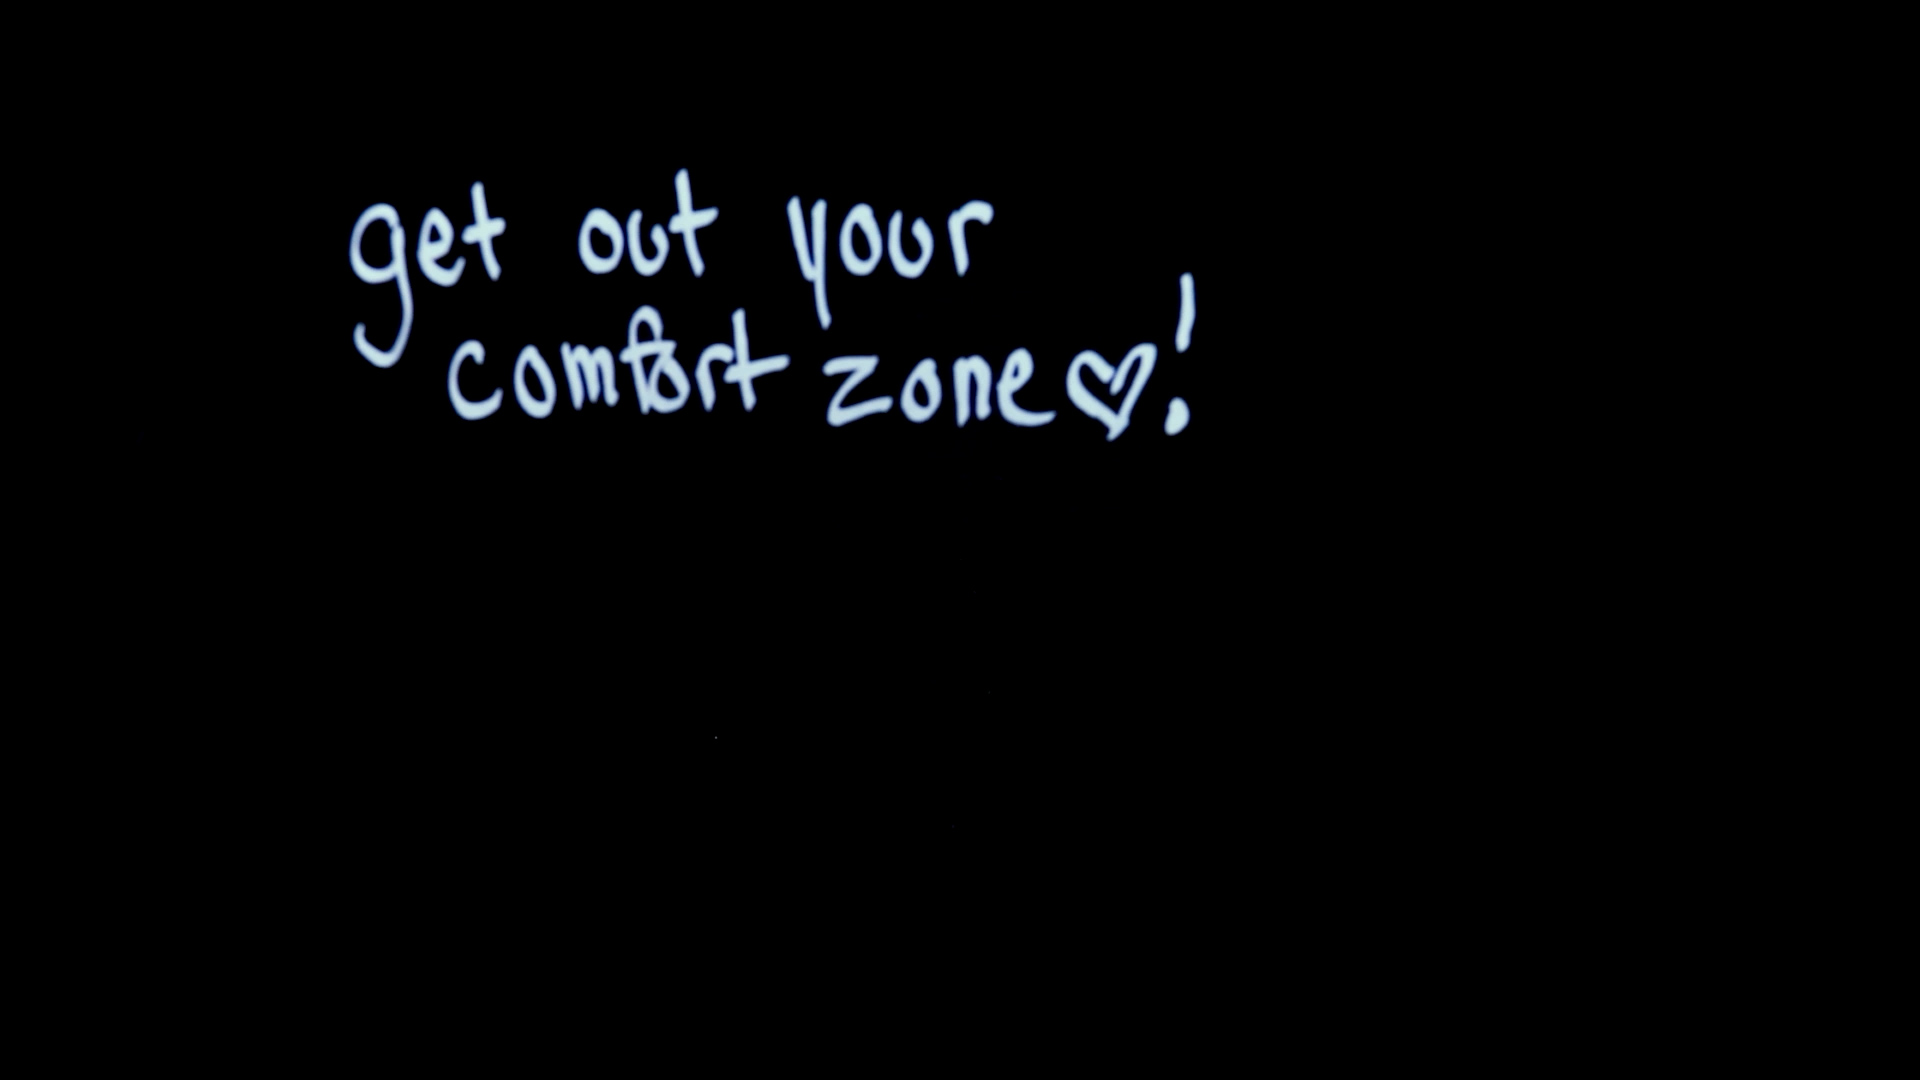 get out your
comfort zone♡!